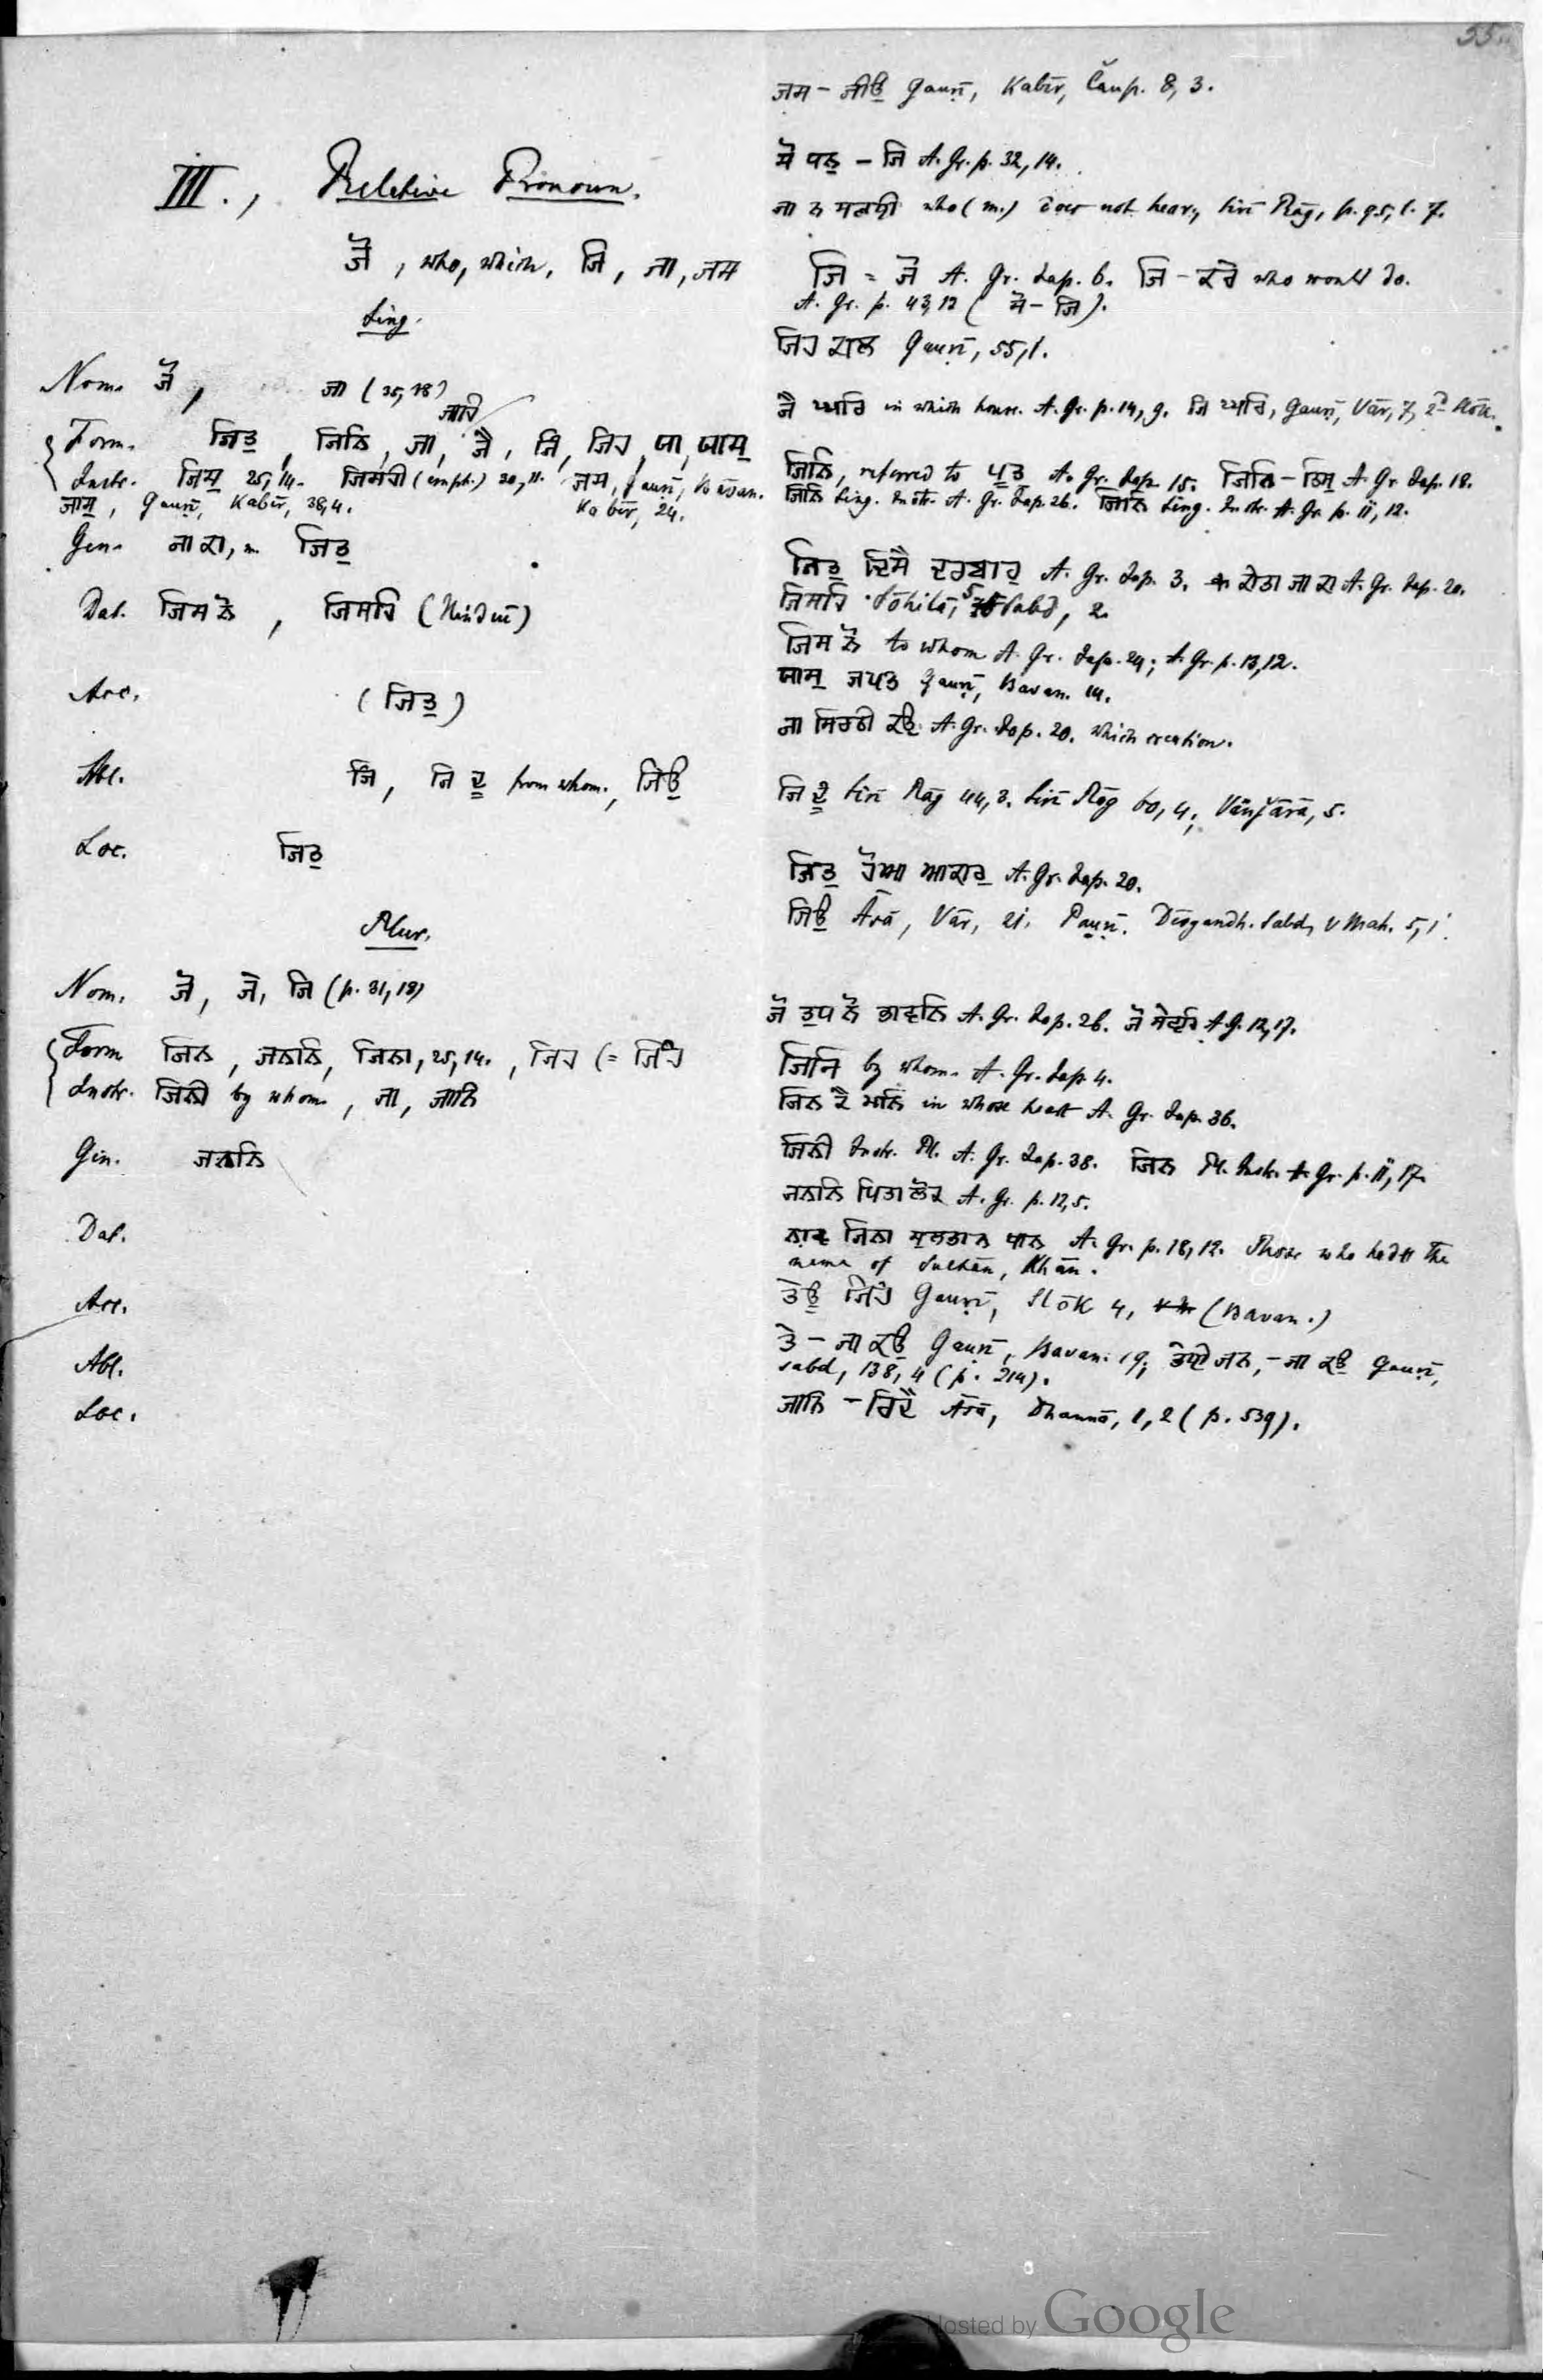 55
III., Relative Pronoun.
ਜੋ, who, which, ਜਿ, ਜਾ, ਜਸ
Sing.
Nom. ਜੋ, ਜਾ (35,18)
ਜਾਹਿ
Form. ਜਿਤੁ, ਜਿਨਿ, ਜਾ, ਜੈ, ਜਿ, ਜਿਹ, ਯਾ, ਯਾਸੁ
Instr. ਜਿਸੁ 25,14. ਜਿਸਹੀ (emph.) 20,11. ਜਸ, Gauṛī, Bāvan.
ਜਾਸੁ, Gauṛī, Kabīr, 38,4. Kabīr, 24.
Gen. ਜਾ ਕਾ, m. ਜਿਤੁ
Dat. ਜਿਸ ਨੋ, ਜਿਸਹਿ (Hinduī)
Acc. (ਜਿਤੁ)
Abl. ਜਿ, ਜਿ ਦੂ from whom., ਜਿਉ
Loc. ਜਿਤੁ
Plur.
Nom. ਜੋ, ਜੇ, ਜਿ (p. 31,18)
Form ਜਿਨ, ਜਨਨਿ, ਜਿਨਾ, 25,14., ਜਿਹ (= ਜਿੰਹ
Instr. ਜਿਨੀ by whom, ਜਾ, ਜਾਨਿ
Gen. ਜਨਨਿ
Dat.
Acc.
Abl.
Loc.
ਜਸ - ਜੀਉ Gauṛī, Kabīr, Čaup. 8, 3.
ਸੋ ਧਨੁ - ਜਿ A. Gr. p. 32, 14.
ਜਾ ਨ ਸੁਨਹੀ who (m.) does not hear, Sirī Rāg, p. 95, l. 7.
ਜਿ = ਜੋ A. Gr. Jap. 6. ਜਿ - ਕਰੇ who would do.
A. Gr. p. 43,12 (ਸੋ - ਜਿ).
ਜਿਹ ਕਾਲ Gauṛī, 55,1.
ਜੈ ਘਰਿ in which house. A. Gr. p. 14, 9. ਜਿ ਘਰਿ, Gauṛī, Vār, 7, 2d Slōk.
ਜਿਨਿ, referred to ਪੁਤੁ A. Gr. Jap. 15. ਜਿਨਿ - ਤਿਸੁ A. Gr. Jap. 18.
ਜਿਨਿ Sing. Instr. A. Gr. Jap. 26. ਜਿਨਿ Sing. Instr. A. Gr. p. 11, 12.
ਜਿਤੁ ਦਿਸੈ ਦਰਬਾਰੁ A. Gr. Jap. 3. ਕੀਤਾ ਜਾ ਕਾ A. Gr. Jap. 20.
ਜਿਸਹਿ Sōhilā, 5 Sabd, 2.
ਜਿਸ ਨੋ to whom A. Gr. Jap. 24; A. Gr. p. 13,12.
ਯਾਸੁ ਜਪਤ Gauṛī, Bavan. 14.
ਜਾ ਸਿਰਠੀ ਕਉ A. Gr. Jap. 20. which creation.
ਜਿ ਦੂ Sirī Rāg 44, 3. Sirī Rāg 60, 4; Vaṇjārā, 5.
ਜਿਤੁ ਹੋਆ ਆਕਾਰੁ A. Gr. Jap. 20.
ਜਿਉ Āsā, Vār, 21, Pauṛī. Dēvgandh. Sabd, V Mah. 5, 1.
ਜੋ ਤੁਧ ਨੋ ਭਾਵਨਿ A. Gr. Jap. 26. ਜੋ ਸੇਵਹਿ A G. 12,17.
ਜਿਨਿ by whom. A. Gr. Jap. 4.
ਜਿਨ ਕੈ ਮਨਿ in whose heart A. Gr. Jap. 36.
ਜਿਨੀ Instr. Pl. A. Gr. Jap. 38. ਜਿਨ Pl. Instr. A. Gr. p. 11, 17.
ਜਨਨਿ ਪਿਤਾ ਲੋਕ A. Gr. p. 12, 5.
ਨਾਵ ਜਿਨਾ ਸੁਲਤਾਨ ਖਾਨ A. Gr. p. 18, 12. Those who had the
name of Sultān, Khān.
ਤੇਊ ਜਿਹ Gauṛī, Slōk 4, (Bavan.)
ਤੇ - ਜਾ ਕਉ Gauṛī, Bavan. 19; ਤੇਈ ਜਨ, - ਜਾ ਕਉ Gauṛī,
sabd, 138, 4 (p. 214).
ਜਾਨਿ - ਰਿਦੈ Āsā, Dhannā, 1, 2 (p. 539).
Hosted by Google